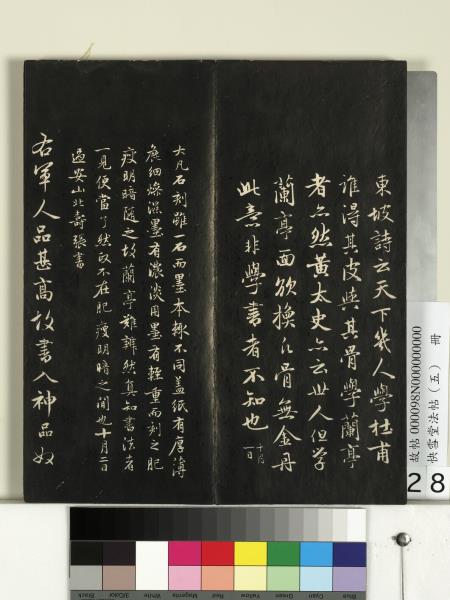 東坡詩云天下幾人學杜甫
誰得其皮與其骨學蘭亭
者亦然黃太史亦云世人但學
蘭亭面欲換凡骨無金丹
此意非學書者不知也
十月
一日
大凡石刻雖一石而墨本輒不同蓋紙有厚薄
麁細燥濕墨有濃淡用墨有輕重而刻之肥
瘦明暗隨之故蘭亭難辨然真知書法者
一見便當了然政不在肥瘦明暗之間也十月二日
過安山北壽張書
右軍人品甚高故書入神品奴
故帖000098N000000000 冊
快雪堂法帖(五)
28
Black
3/Color
White
Magenta
Red
Yellow
Green
Cyan
Blue